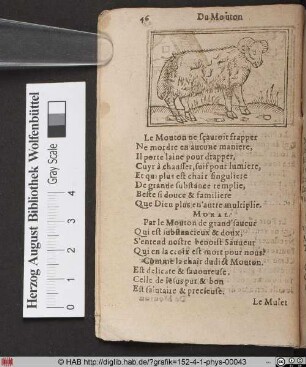 46 Du Mouton
Le Mouton ne sçauroit frapper
Ne mordre en aucune maniere,
Il porte laine pour drapper,
Cuyr à chausser, suif pour lumiere,
Et qui plus est chair singuliere
De grande substance remplie,
Beste si douce & familiere
Que Dieu plus en autre multiplie.
MORAL.
Par le Mouton de grand saueur
Qui est substancieux & doux,
S'entend nostre benoist Sauueur
Qui en la croix est mort pour nous
Comme la chair dudict Mouton.
Est delicate & sauoureuse.
Celle de Iesus pur & bon
Est salutaire & precieuse.
Le Mulet
Herzog August Bibliothek Wolfenbüttel
Gray Scale
0 1 2 3 4
© HAB http://diglib.hab.de/?grafik=152-4-1-phys-00043